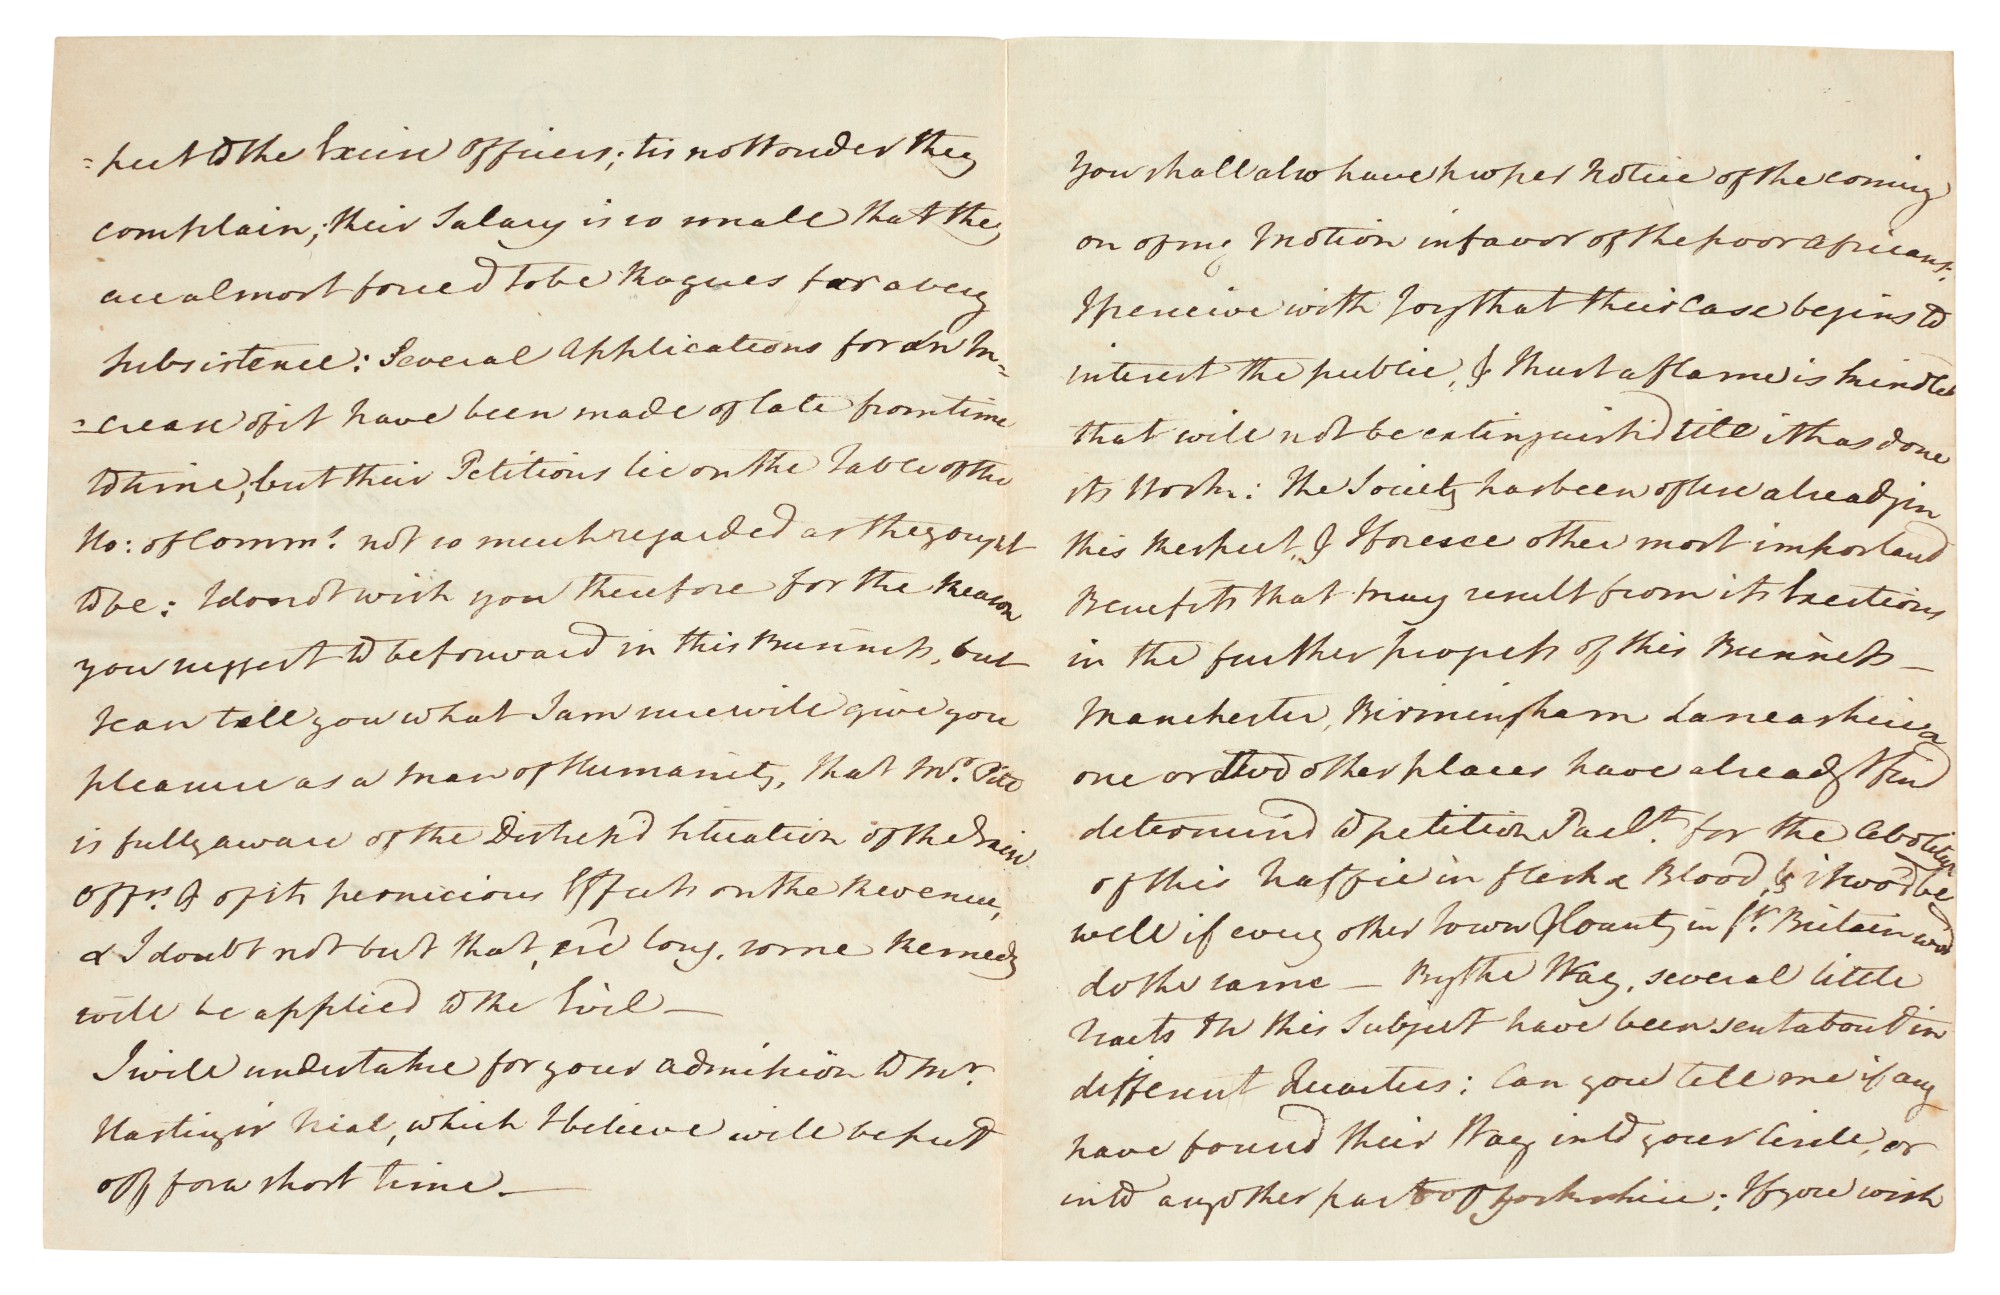 =pect to the Excise Officers; tis no Wonder they
complain; their Salary is so small that they
are almost forced to be Rogues for a very
Subsistence: Several Applications for an In=
=crease of it have been made of late from time
to time, but their Petitions lie on the Table of the
Ho: of Comms. not so much regarded as they ought
to be: I do not wish you therefore for the Reason
you suggest to be forward in this Business, but
I can tell you what I am sure will give you
pleasure as a Man of Humanity, that Mr. Pitt
is fully aware of the Distress'd Situation of the Excise
Offrs. & of its pernicious Effects on the Revenue,
& I doubt not but that, ere long, some Remedy
will be applied to the Evil —
I will undertake for your Admission to Mr.
Hastings's Trial, which I believe will be put
off for a short time. —
You shall also have proper Notice of the coming
on of my Motion in favor of the poor Africans.
I perceive with Joy that their Case begins to
interest the public, & I trust a flame is kindled
that will not be extinguish'd till it has done
its Work: The Society has been of Use already in
this Respect, & I foresee other most important
Benefits that may result from its Exertions
in the further progress of this Business —
Manchester, Birmingham Lancashire &
one or two other places have already I find
determin'd to petition Parlt. for the Abolition
of this traffic in flesh & Blood, & it wod be
well if every other Town & County in Gt. Britain wod
do the same — By the Way, several little
tracts on this Subject have been sent about in
different Quarters: Can you tell me if any
have found their Way into your Circle, or
into any other part of Yorkshire: If you wish